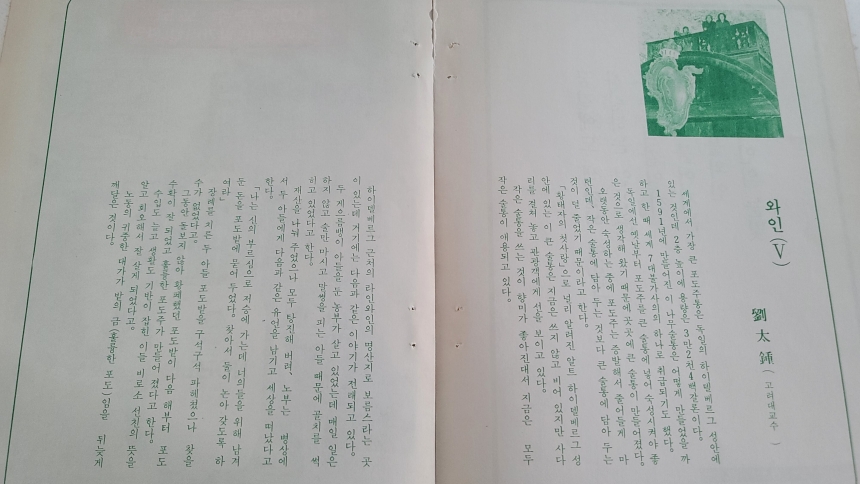 와인(Ⅴ)
劉太鍾 (고려대교수)
세계에서 가장 큰 포도주통은 독일의 하이델베르그 성안에
있는 것인데 2층 높이에 용량은 3만2천4백갈론이다.
1591년에 만들어진 이 나무술통은 어떻게 만들었을까
하고 한때 세계 7대불가사의의 하나로 취급되기도 했다.
독일에서 옛날부터 포도주를 큰 술통에 넣어 숙성시켜야 좋
은 것으로 생각해 왔기 때문에 곳곳에 큰 술통이 만들어졌다.
오랫동안 숙성하는 중에 포도주는 증발해서 줄어들게 마
련인데, 작은 술통에 담아 두는 것보다 큰 술통에 담아 두는
것이 덜 줄었기 때문이라고 한다.
「황태자의 첫사랑」으로 널리 알려진 알트 하이델베르그 성
안에 있는 이 큰 술통은 지금은 쓰지 않고 비어 있지만 사다
리를 걸쳐 놓고 관광객에게 선을 보이고 있다.
작은 술통을 쓰는 것이 향미가 좋아진대서 지금은 모두
작은 술통이 애용되고 있다.
하이델베르그 근처의 라인와인의 명산지로 보름스라는 곳
이 있는데 거기에는 다음과 같은 이야기가 전래되고 있다.
두 게으름뱅이 아들을 둔 농부가 살고 있었는데 매일 일은
하지 않고 술만 마시고 말썽을 피는 아들 때문에 골치를 썩
히고 있었다고 한다.
재산을 나눠 주었으나 모두 탕진해 버려, 노부는 병상에
서 두 아들에게 다음과 같은 유언을 남기고 세상을 떠났다고
한다.
「나는 신의 부르심으로 저승에 가는데 너의들을 위해 남겨
둔 돈을 포도밭에 묻어 두었다. 찾아서 둘이 논아 갖도록 하
여라」
장례를 지른 두 아들 포도밭을 구석구석 파헤쳤으나 찾을
수가 없었다고.
그동안 돌보지 않아 황폐했던 포도밭이 다음 해부터 포도
수확이 잘 되었고 훌륭한 포도주가 만들어졌다고 한다.
수입도 늘고 생활도 기반이 잡힌 이들 비로소 선친의 뜻을
알고 회호해서 잘 살게 되었다고.
노동의 귀중한 대가가 밭의 금(훌륭한 포도)임을 뒤늦게
깨달은 것이다.